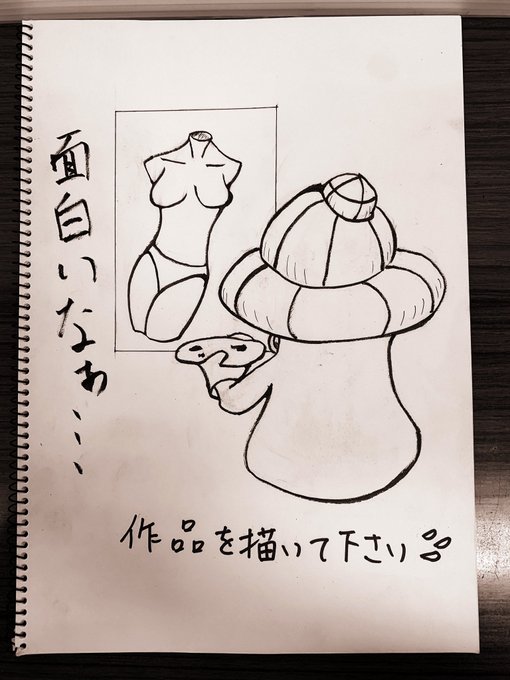 面白いなぁ…
作品を描いて下さい